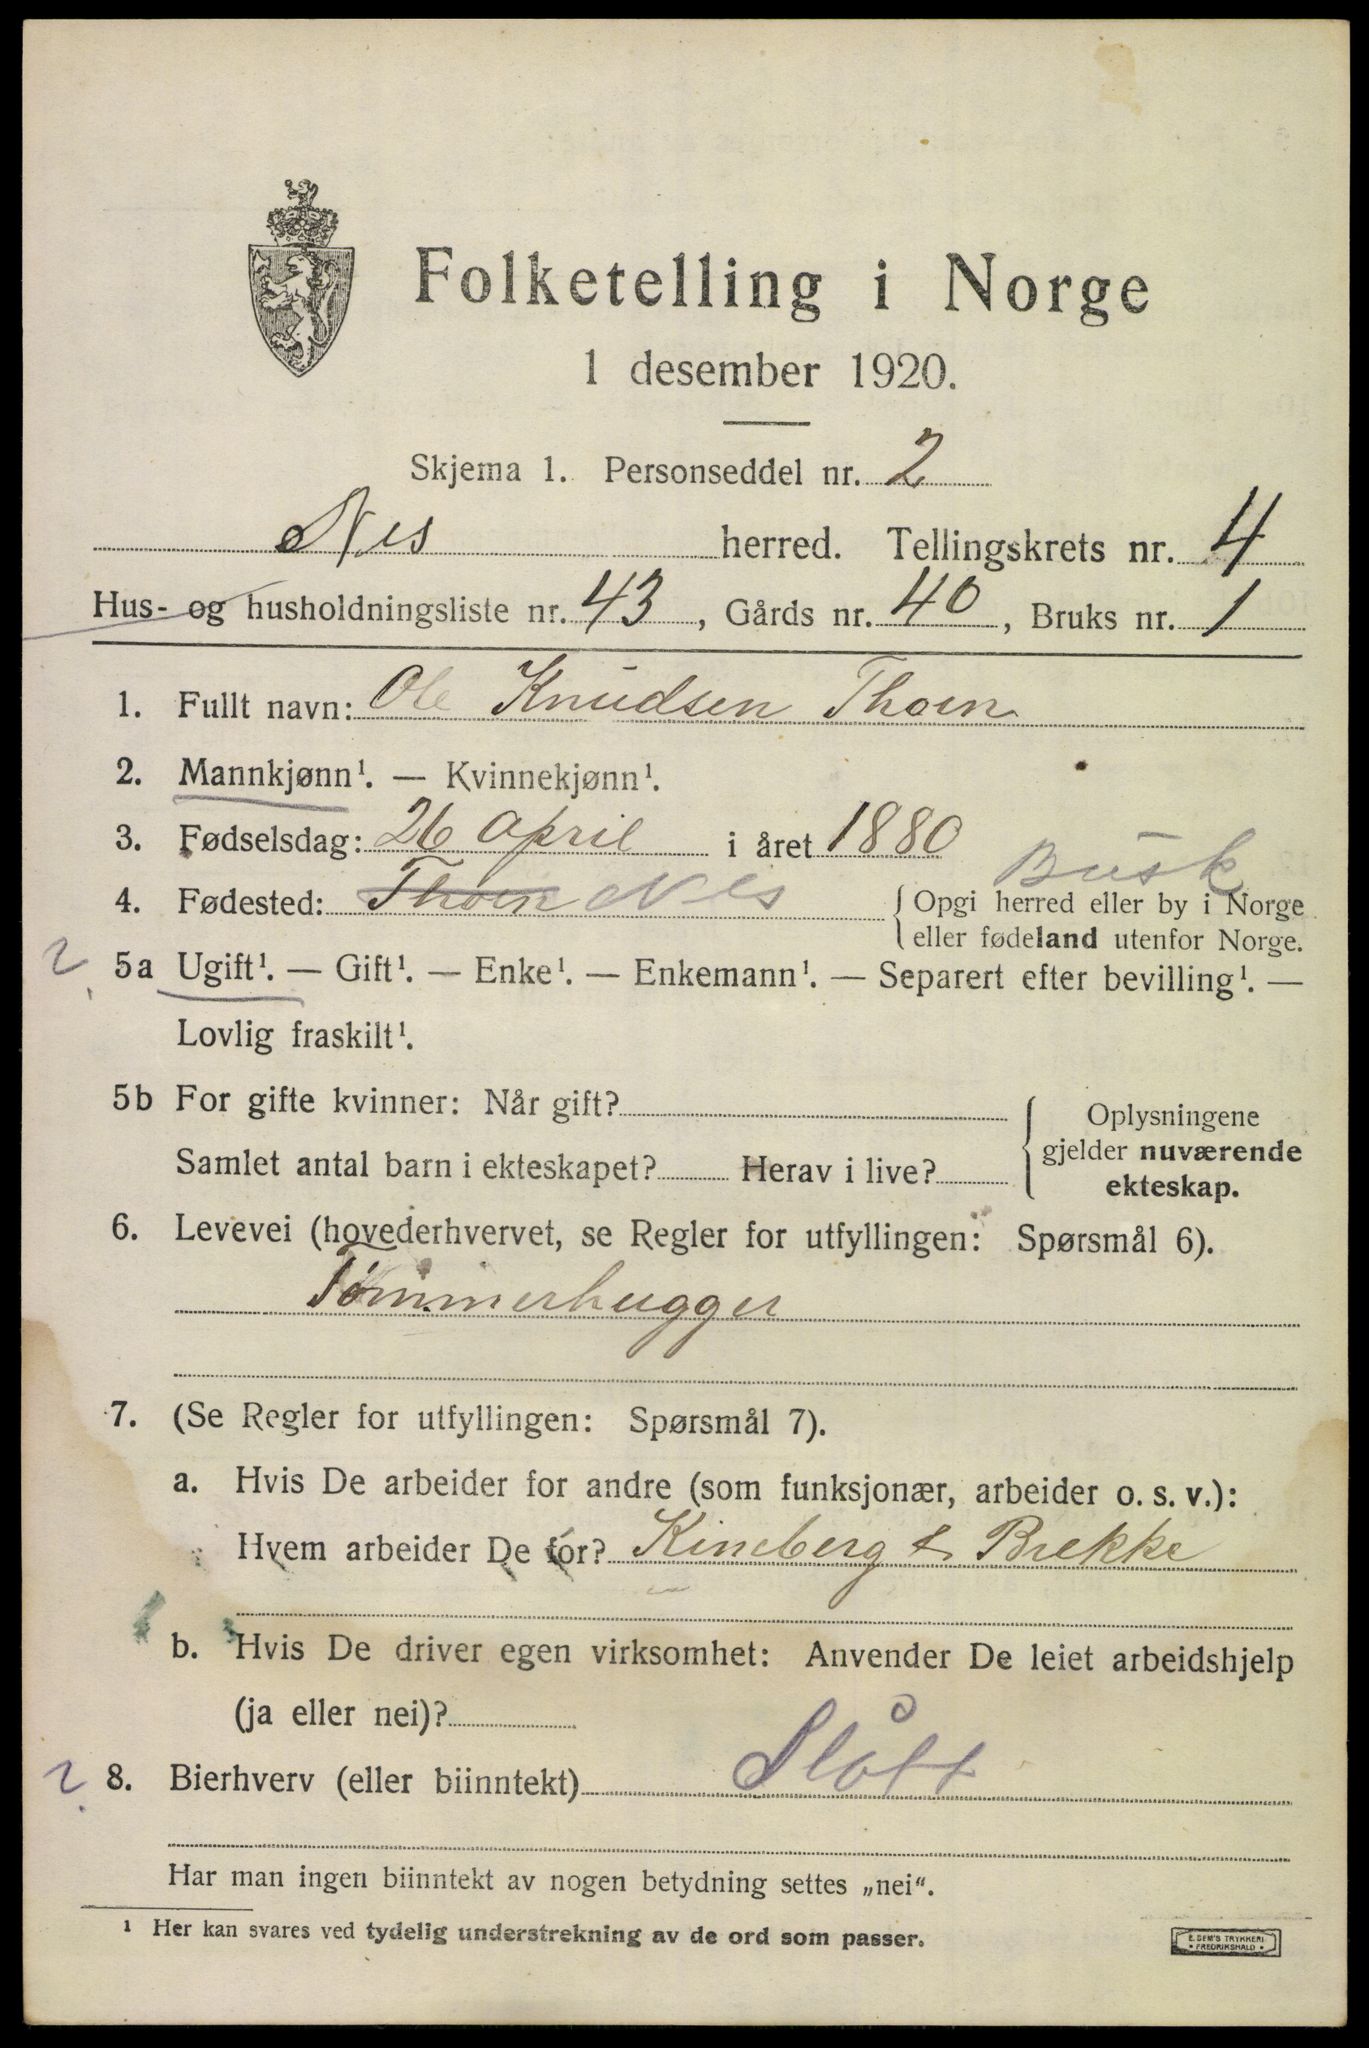 Folketelling i Norge
1 desember 1920.
Skjema 1. Personseddel nr. 2
Nes herred. Tellingskrets nr. 4
Hus- og husholdningsliste nr. 43, Gårds nr. 40, Bruks nr. 1
1. Fullt navn: Ole Knudsen Thoen
2. Mannkjønn¹. — Kvinnekjønn¹.
3. Fødselsdag: 26 April i året 1880
Busk
4. Fødested: Thoen Nes { Opgi herred eller by i Norge
eller fødeland utenfor Norge.
5a Ugift¹. — Gift¹. — Enke¹. — Enkemann¹. — Separert efter bevilling¹. —
Lovlig fraskilt¹.
5b For gifte kvinner: Når gift? { Oplysningene
gjelder nuværende
Samlet antal barn i ekteskapet? Herav i live?
ekteskap.
6. Levevei (hovederhvervet, se Regler for utfyllingen: Spørsmål 6).
Tømmerhugger
7. (Se Regler for utfyllingen: Spørsmål 7).
a. Hvis De arbeider for andre (som funksjonær, arbeider o. s. v.):
Hvem arbeider De for? Kineberg & Brekke
b. Hvis De driver egen virksomhet: Anvender De leiet arbeidshjelp
(ja eller nei)?
8. Bierhverv (eller biinntekt) Slått
Har man ingen biinntekt av nogen betydning settes „nei“.
¹ Her kan svares ved tydelig understrekning av de ord som passer.
E. SEM'S TRYKKERI
• FREDRIKSHALD •